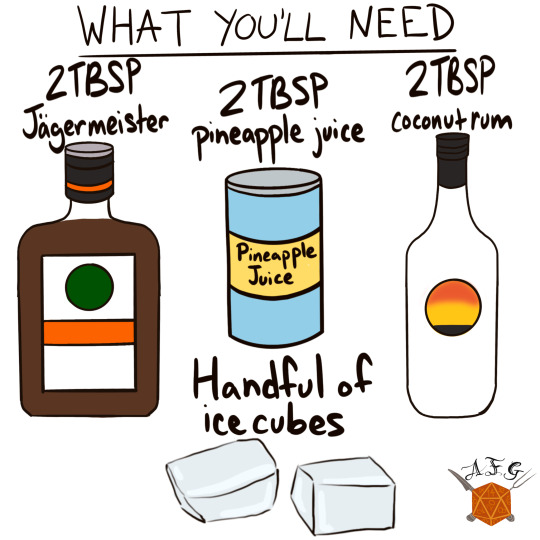 WHAT YOU'LL NEED
2TBSP
Jägermeister
2 TBSP
pineapple juice
2TBSP
coconut rum
Pineapple
Juice
Handful of
ice cubes
A.F.G